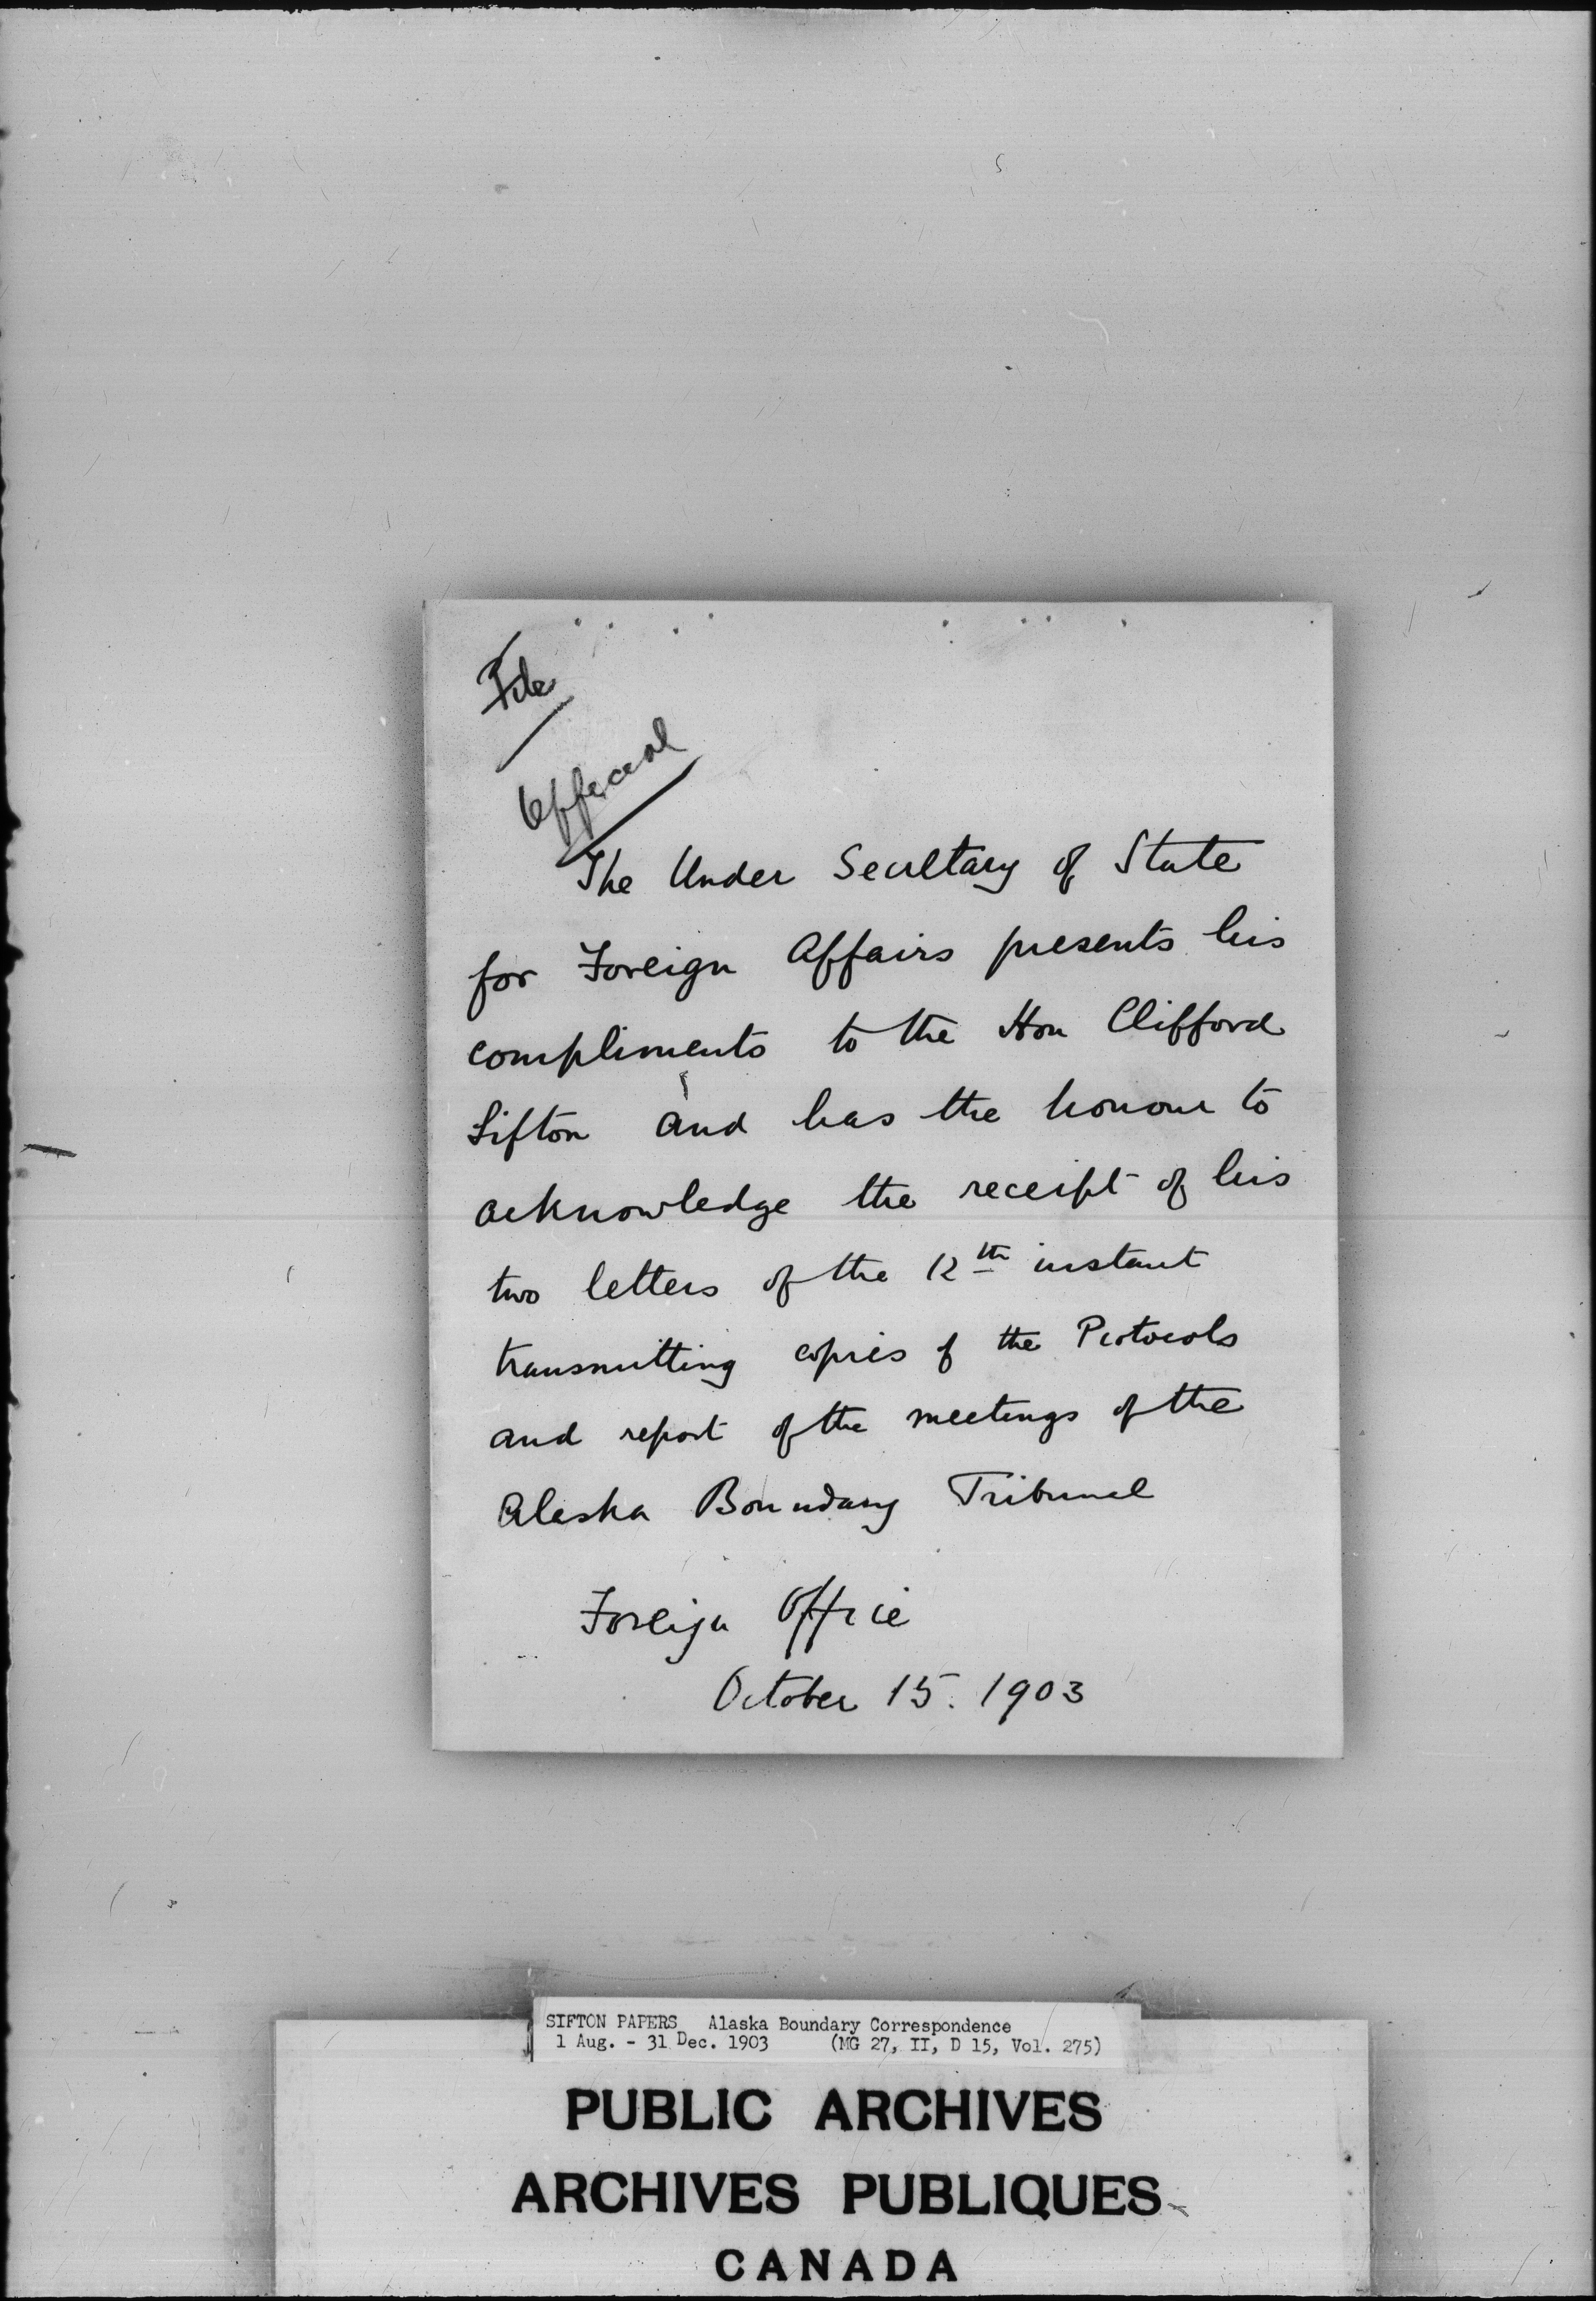 File
Official
The Under Secretary of State
for Foreign Affairs presents his
compliments to the Hon Clifford
Sifton and has the honour to
acknowledge the receipt of his
two letters of the 12th instant
transmitting copies of the Protocols
and report of the meetings of the
Alaska Boundary Tribunal
Foreign Office
October 15. 1903
SIFTON PAPERS Alaska Boundary Correspondence
1 Aug. - 31 Dec. 1903 (MG 27, II, D 15, Vol. 275)
PUBLIC ARCHIVES
ARCHIVES PUBLIQUES
CANADA